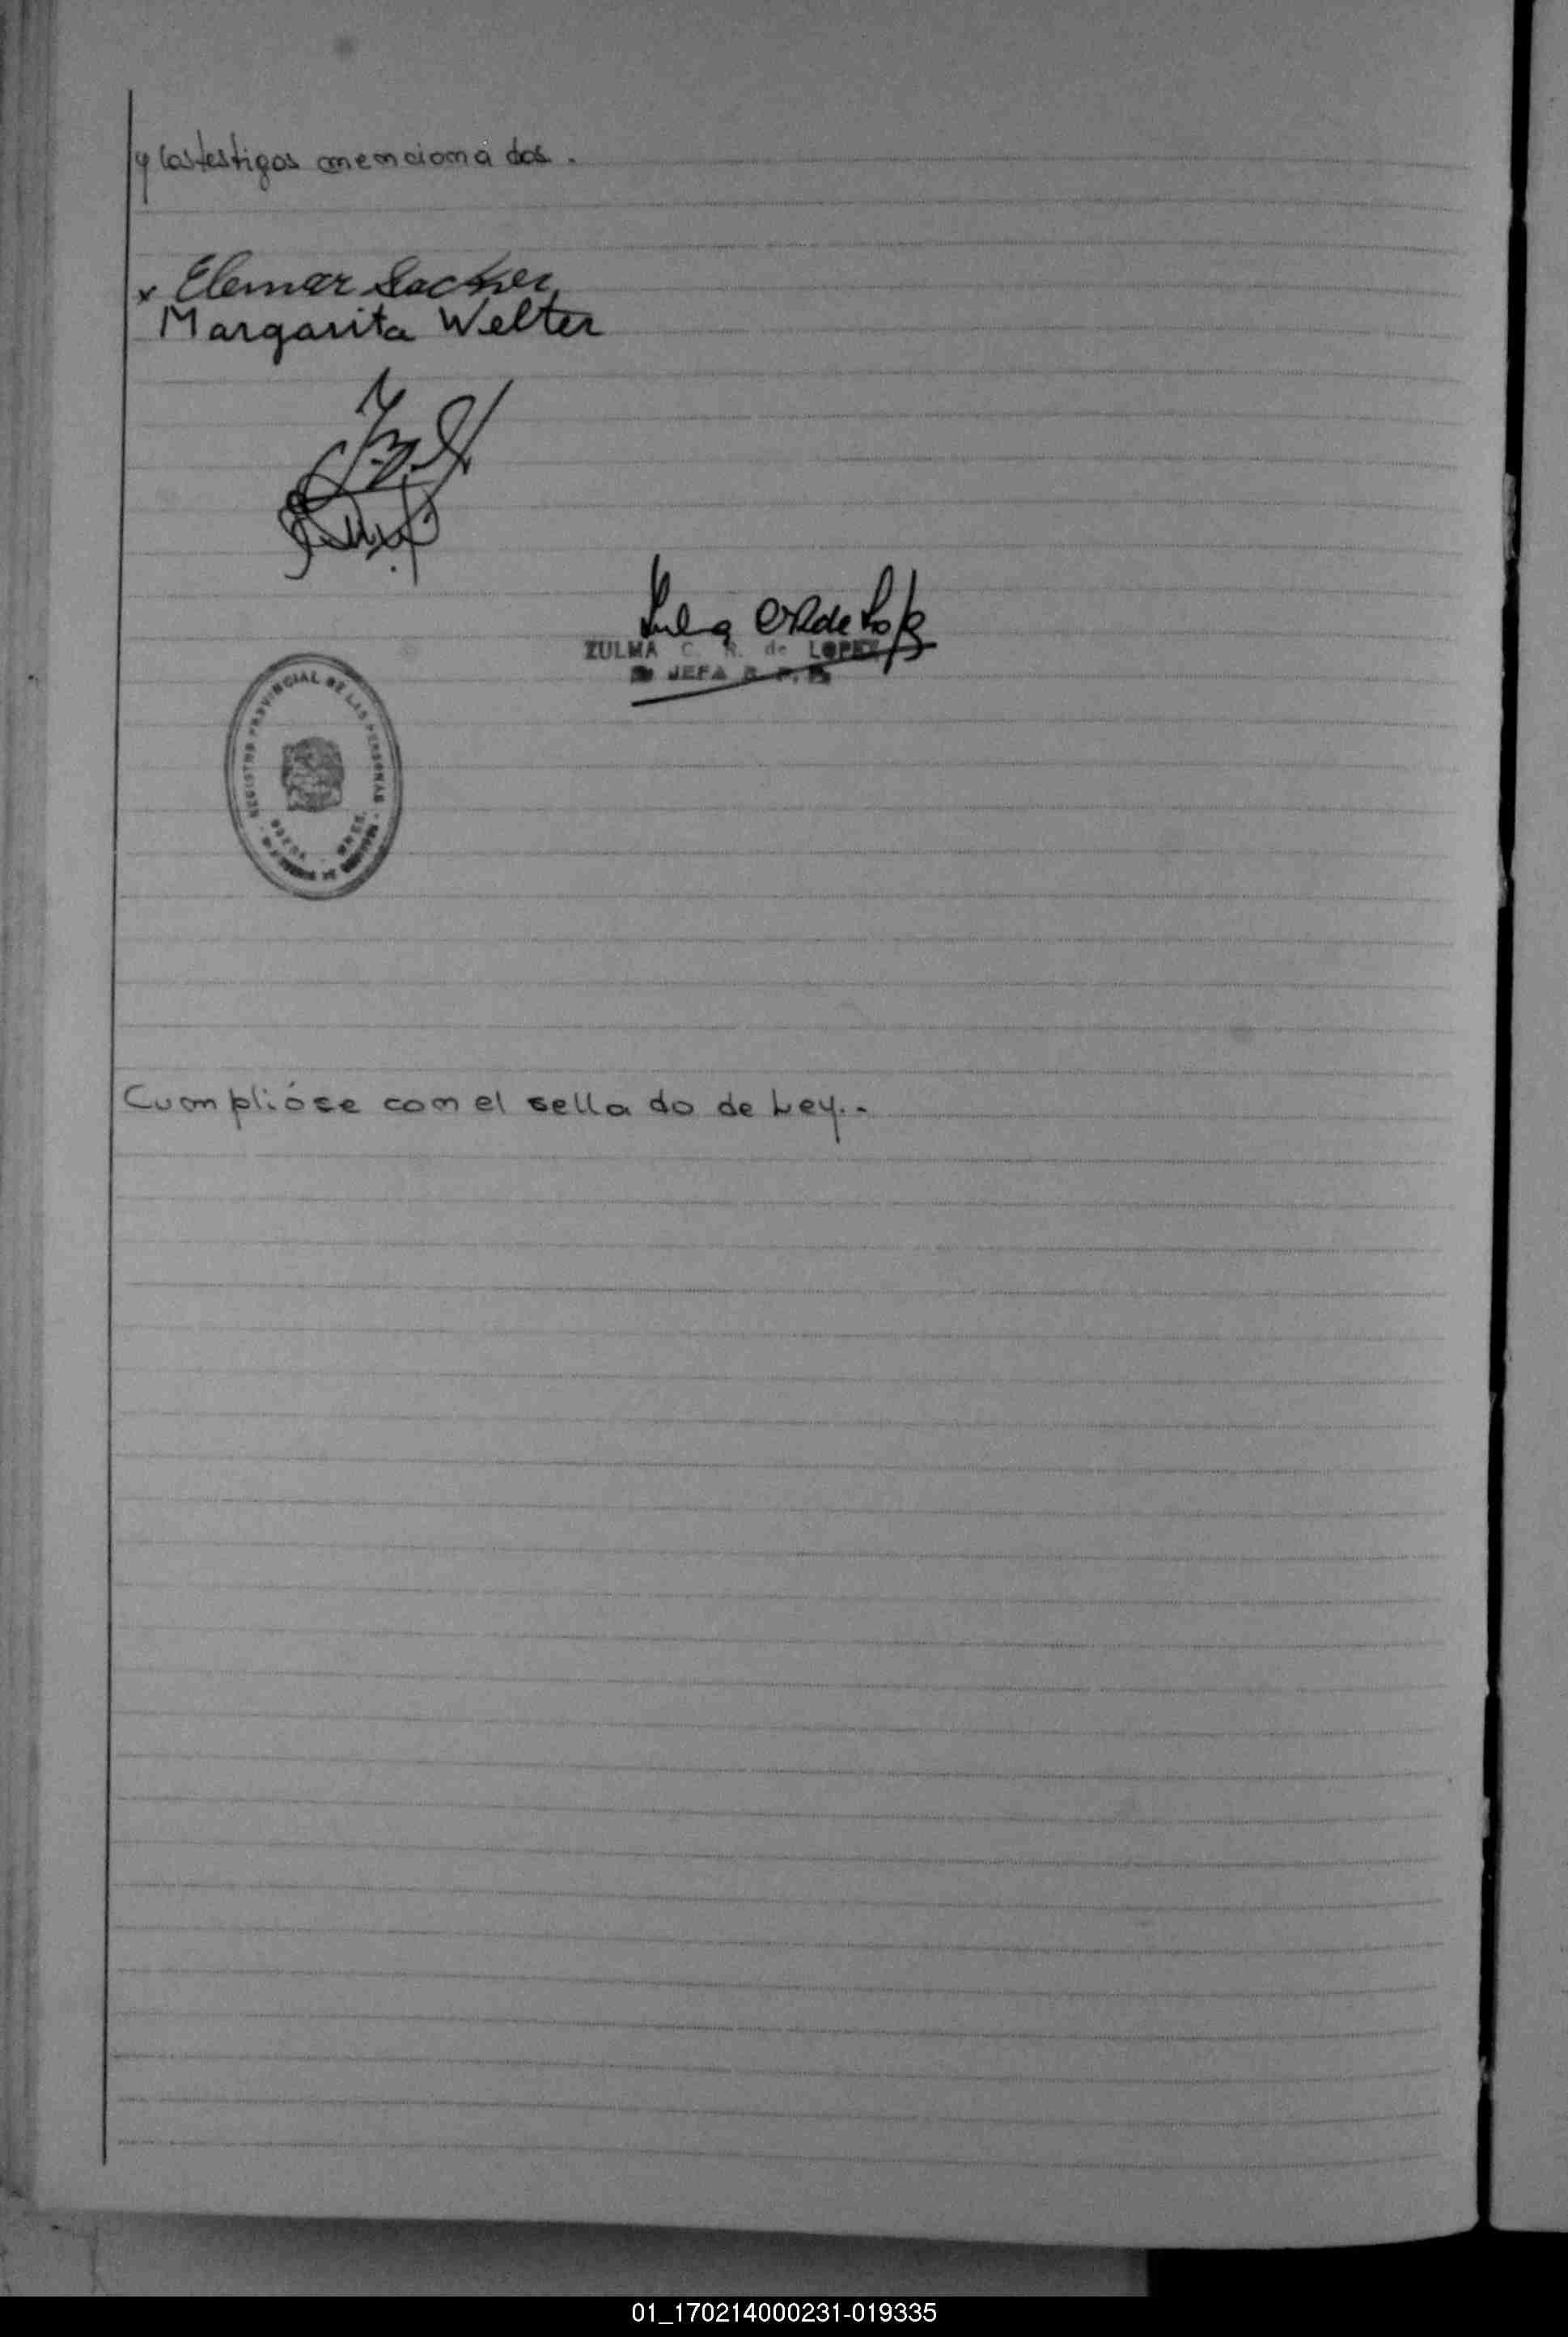 y los testigos mencionados.
x Elemar Sacker
Margarita Welter
ZULMA C. R. de LOPEZ
JEFA R. P. P.
REGISTRO PROVINCIAL DE LAS PERSONAS
Cumplióse con el sellado de Ley.-
01_170214000231-019335